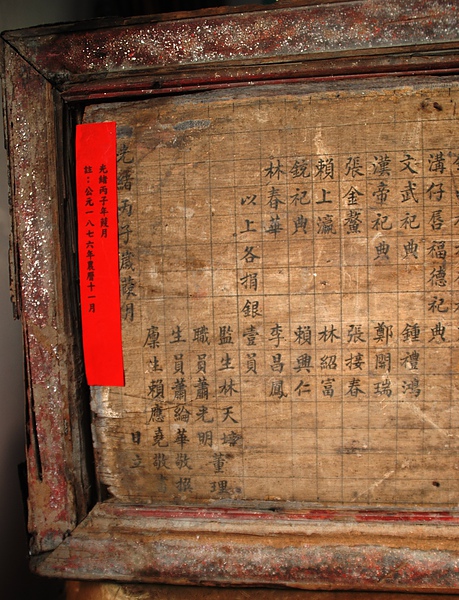 溝仔唇福德祀典
文武祀典 鍾禮鴻
漢帝祀典 鄭開瑞
張金鰲 張接春
賴上瀛 林紹富
鏡祀典 賴興仁
林春華 李昌鳳
以上各捐銀壹員
監生林天 董理
職員蕭光明
生員蕭綸華敬撰
廩生賴應堯敬
光緒丙子歲葭月 日立
光緒丙子年葭月
註：公元一八七六年農曆十一月